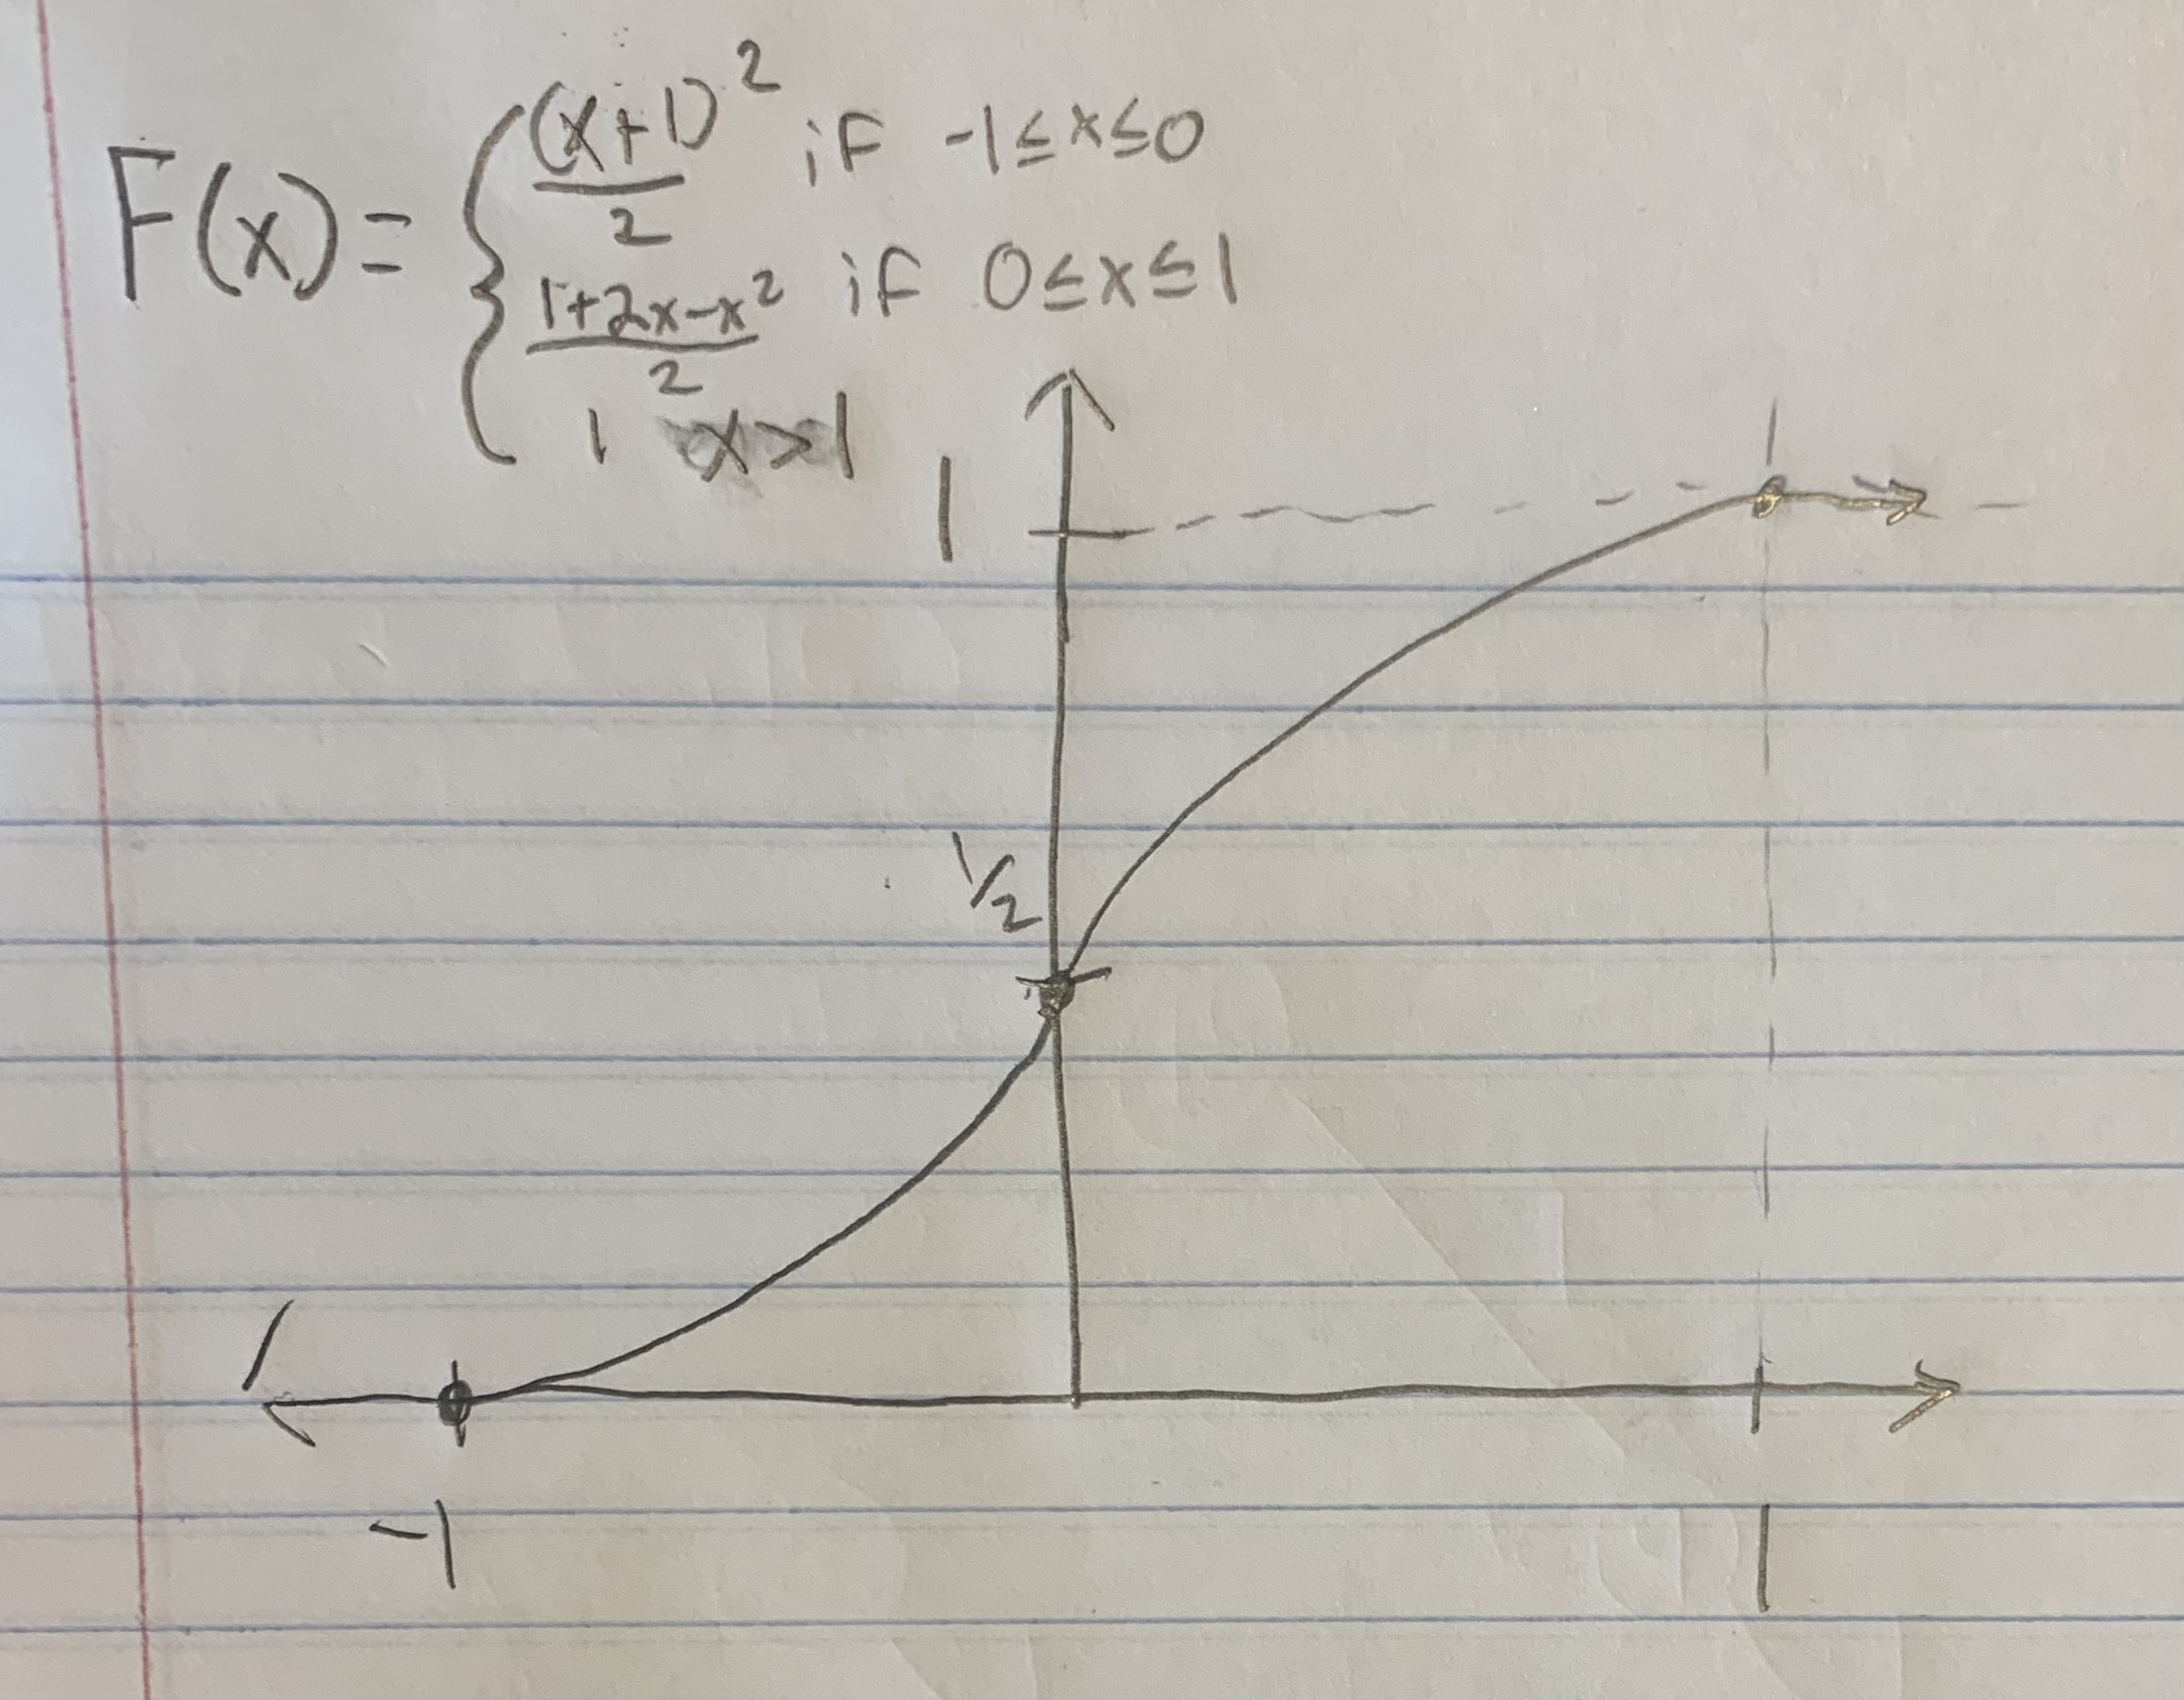 F(x) = { (x+1)²/2 if -1≤x≤0
1+2x-x²/2 if 0≤x≤1
1 x>1
1
1/2
-1 1